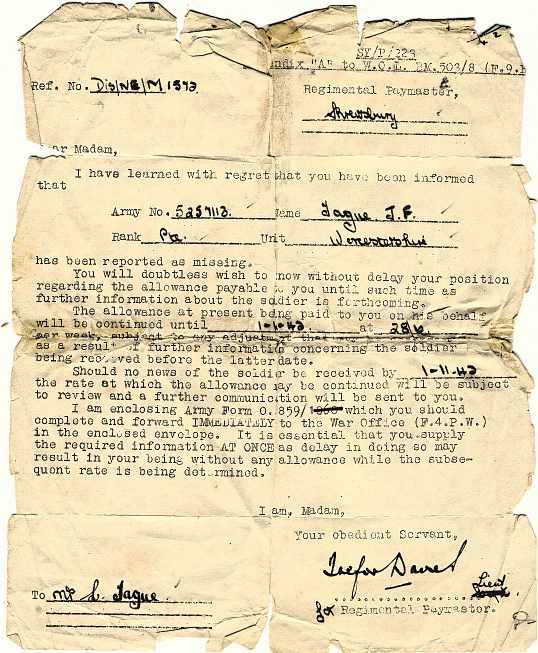 SY/P/323
"A" to W.O.L. DM.503/8 (F.9.
Ref. No. Dis/NE/M 1593
Regimental Paymaster,
Shrewsbury
Madam,
I have learned with regret that you have been informed
that
Army No. 5257113. Name Tague J.F.
Rank Pte. Unit Worcestershire
has been reported as missing.
You will doubtless wish to know without delay your position
regarding the allowance payable to you until such time as
further information about the soldier is forthcoming.
The allowance at present being paid to you on his behalf
will be continued until at 28/6
per week, subject to any adjustment that may
as a result of further information concerning the soldier
being received before the latter date.
Should no news of the soldier be received by 1-11-42
the rate at which the allowance may be continued will be subject
to review and a further communication will be sent to you.
I am enclosing Army Form O.1859/ which you should
complete and forward IMMEDIATELY to the War Office (F.4.P.W.)
in the enclosed envelope. It is essential that you supply
the required information AT ONCE as delay in doing so may
result in your being without any allowance while the subse-
quent rate is being determined.
I am, Madam,
Your obedient Servant,
Lieut
To Mrs L. Tague.
for Regimental Paymaster.